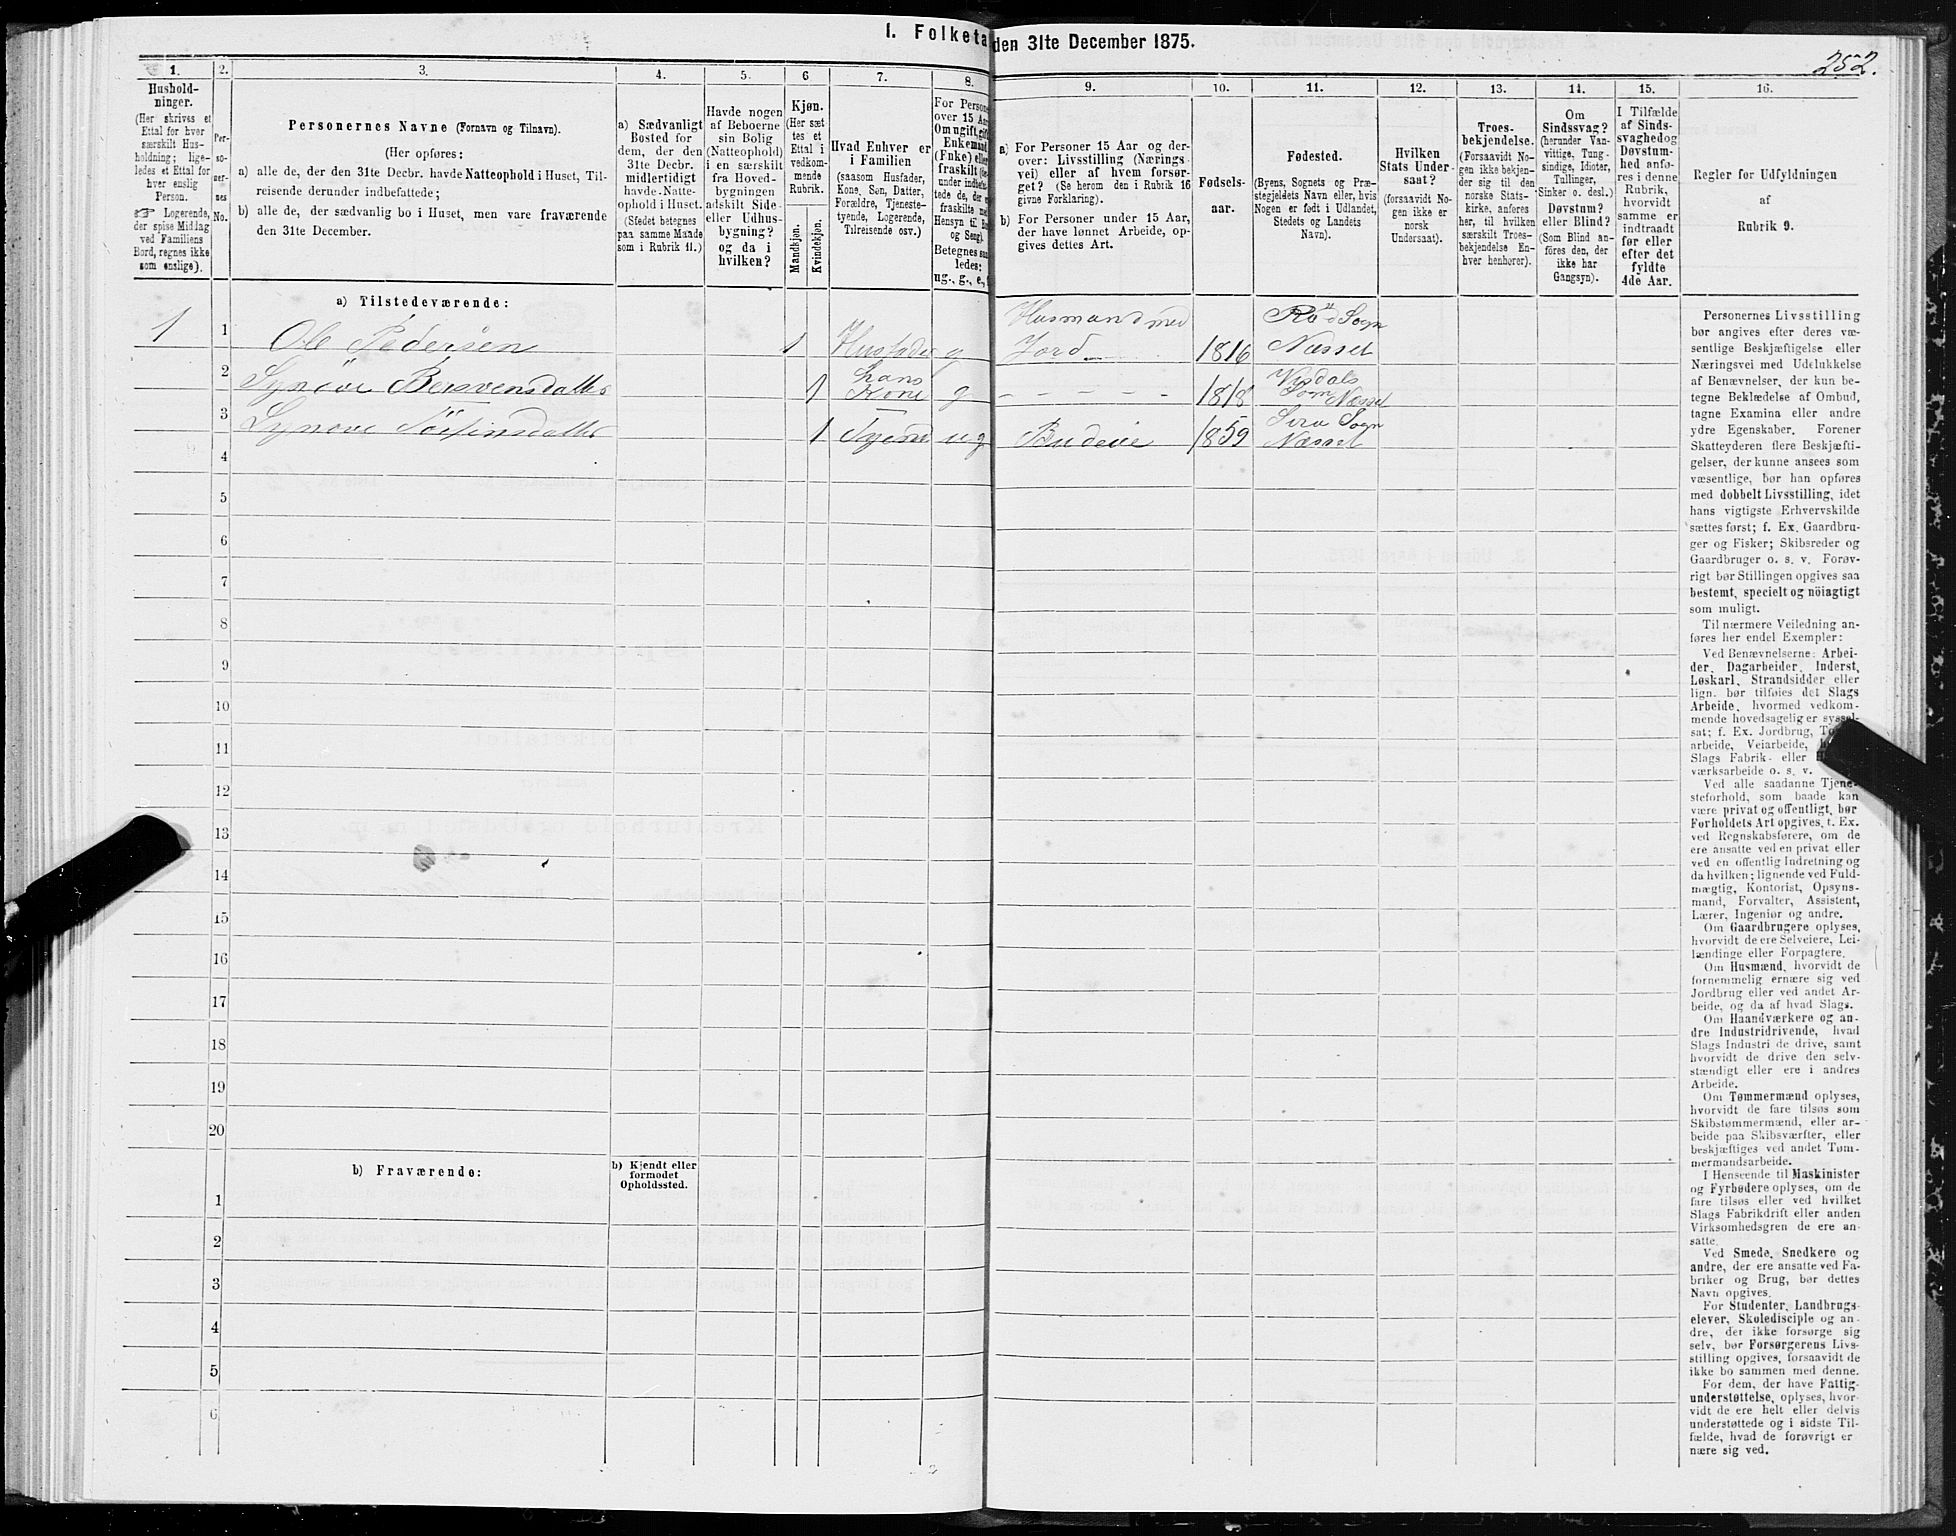 1. Folketa den 31te December 1875.
252.
1.
2.
3.
4.
5.
6
7.
8.
9.
10.
11.
12.
13.
14.
15.
16.
Hushold-
ninger.
(Her skrives et
Ettal for hver
særskilt Hus-
holdning; lige-
ledes et Ettal for
hver enslig
Person.
☞ Logerende,
der spise Middag
ved Familiens
Bord, regnes ikke
som enslige).
Per-
so-
ner-
nes
No.
Personernes Navne (Fornavn og Tilnavn).
(Her opføres:
a) alle de, der den 31te Decbr. havde Natteophold i Huset, Til-
reisende derunder indbefattede;
b) alle de, der sædvanlig bo i Huset, men vare fraværende
den 31te December.
a) Sædvanligt
Bosted for
dem, der den
31te Decbr.
midlertidigt
havde Natte-
ophold i Huset.
(Stedet betegnes
paa samme Maade
som i Rubrik 11.)
Havde nogen
af Beboerne
sin Bolig
(Natteophold)
i en særskilt
fra Hoved-
bygningen
adskilt Side-
eller Udhus-
bygning?
og da i
hvilken?
Kjøn.
(Her sæt-
tes et
Ettal i
vedkom-
mende
Rubrik.
Mandkjøn.
Kvindekjøn.
Hvad Enhver er
i Familien
(saasom Husfader,
Kone, Søn, Datter,
Forældre, Tjeneste-
tyende, Logerende,
Tilreisende osv.)
For Persone
over 15 Aar
Om ugift, gift
Enkemand
(Enke) eller
fraskilt
under indbefat-
tede de, der e
fraskilte med
Hensyn til Bo
og Seng).
Betegnes saa
ledes:
ug., g., e.,
a) For Personer 15 Aar og der-
over: Livsstilling (Nærings-
vei) eller af hvem forsør-
get? (Se herom den i Rubrik 16
givne Forklaring).
b) For Personer under 15 Aar,
der have lønnet Arbeide, op-
gives dettes Art.
Fødsels-
aar.
Fødested.
(Byens, Sognets og Præ-
stegjeldets Navn eller, hvis
Nogen er født i Udlandet,
Stedets og Landets
Navn).
Hvilken
Stats Under-
saat?
(forsaavidt No-
gen ikke er
norsk
Undersaat).
Troes-
bekjendelse.
(Forsaavidt No-
gen ikke bekjen-
der sig til den
norske Stats-
kirke, anføres
her, til hvilken
særskilt Troes-
bekjendelse En-
hver henhører).
Om
Sindssvag?
(herunder Van-
vittige, Tung-
sindige, Idioter,
Tullinger,
Sinker o. desl.)
Døvstum?
eller Blind?
(Som Blind an-
føres den, der
ikke har
Gangsyn).
I Tilfælde
af Sinds-
svaghed og
Døvstum-
hed anfø-
res i denne
Rubrik,
hvorvidt
samme er
indtraadt
før eller
efter det
fyldte
4de Aar.
Regler for Udfyldningen
af
Rubrik 9.
a) Tilstedeværende:
1 1 Ole Pedersen 1 Husfader g Husmand med Jord 1816 Rød Sogn Næsset
2 Synøve Bersvensdatter 1 hans Kone g - - - - 1818 Visdals Sogn Næsset
3 Synøve Töstensdatter 1 Tyend ug Budeie 1859 Sira Sogn Næsset
4
5
6
7
8
9
10
11
12
13
14
15
16
17
18
19
20
b) Fraværende:
b) Kjendt eller
formodet
Opholdssted.
1
2
3
4
5
6
Personernes Livsstilling
bør angives efter deres væ-
sentlige Beskjæftigelse eller
Næringsvei med Udelukkelse
af Benævnelser, der kun be-
tegne Beklædelse af Ombud,
tagne Examina eller andre
ydre Egenskaber. Forener
Skatteyderen flere Beskjæfti-
gelser, der kunne ansees som
væsentlige, bør han opføres
med dobbelt Livsstilling, idet
hans vigtigste Erhvervskilde
sættes først; f. Ex. Gaardbru-
ger og Fisker; Skibsreder og
Gaardbruger o. s. v. Forøv-
rigt bør Stillingen opgives saa
bestemt, specielt og nöiagtigt
som muligt.
Til nærmere Veiledning an-
føres her endel Exempler:
Ved Benævnelserne: Arbei-
der, Dagarbeider, Inderst,
Løskarl, Strandsidder eller
lign. bør tilføies det Slags
Arbeide, hvormed vedkom-
mende hovedsagelig er syssel-
sat; f. Ex. Jordbrug,
arbeide, Veiarbeide,
Slags Fabrik- eller
værksarbeide o. s. v.
Ved alle saadanne Tjene-
steforhold, som baade kan
være privat og offentligt, bør
Forholdets Art opgives, t. Ex.
ved Regnskabsførere, om de
ere ansatte ved en privat eller
ved en offentlig Indretning og
da hvilken; lignende ved Fuld-
mægtig, Kontorist, Opsyns-
mand, Forvalter, Assistent,
Lærer, Ingeniør og andre.
Om Gaardbrugere oplyses,
hvorvidt de ere Selveiere, Lei-
lændinge eller Forpagtere.
Om Husmænd, hvorvidt de
fornemmelig ernære sig ved
Jordbrug eller ved andet Ar-
beide, og da af hvad Slags.
Om Haandværkere og an-
dre Industridrivende, hvad
Slags Industri de drive, samt
hvorvidt de drive den selv-
stændigt eller ere i andres
Arbeide.
Om Tømmermænd oplyses,
hvorvidt de fare tilsøs som
Skibstømmermænd, eller ar-
beide paa Skibsværfter, eller
beskjæftiges ved andet Tøm-
mermandsarbeide.
I Henseende til Maskinister
og Fyrbødere oplyses, om de
fare tilsøs eller ved hvilket
Slags Fabrikdrift eller anden
Virksomhedsgren de ere an-
satte.
Ved Smede, Snedkere og
andre, der ere ansatte ved Fa-
briker og Brug, bør dettes
Navn opgives.
For Studenter, Landbrugs-
elever, Skoledisciple og an-
dre, der ikke forsørge sig
selv, bør Forsørgerens Livs-
stilling opgives, forsaavidt de
ikke bo sammen med denne.
For dem, der have Fattig-
understøttelse, oplyses, hvor-
vidt de ere helt eller delvis
understøttede og i sidste Til-
fælde, hvad de forøvrigt er
nære sig ved.